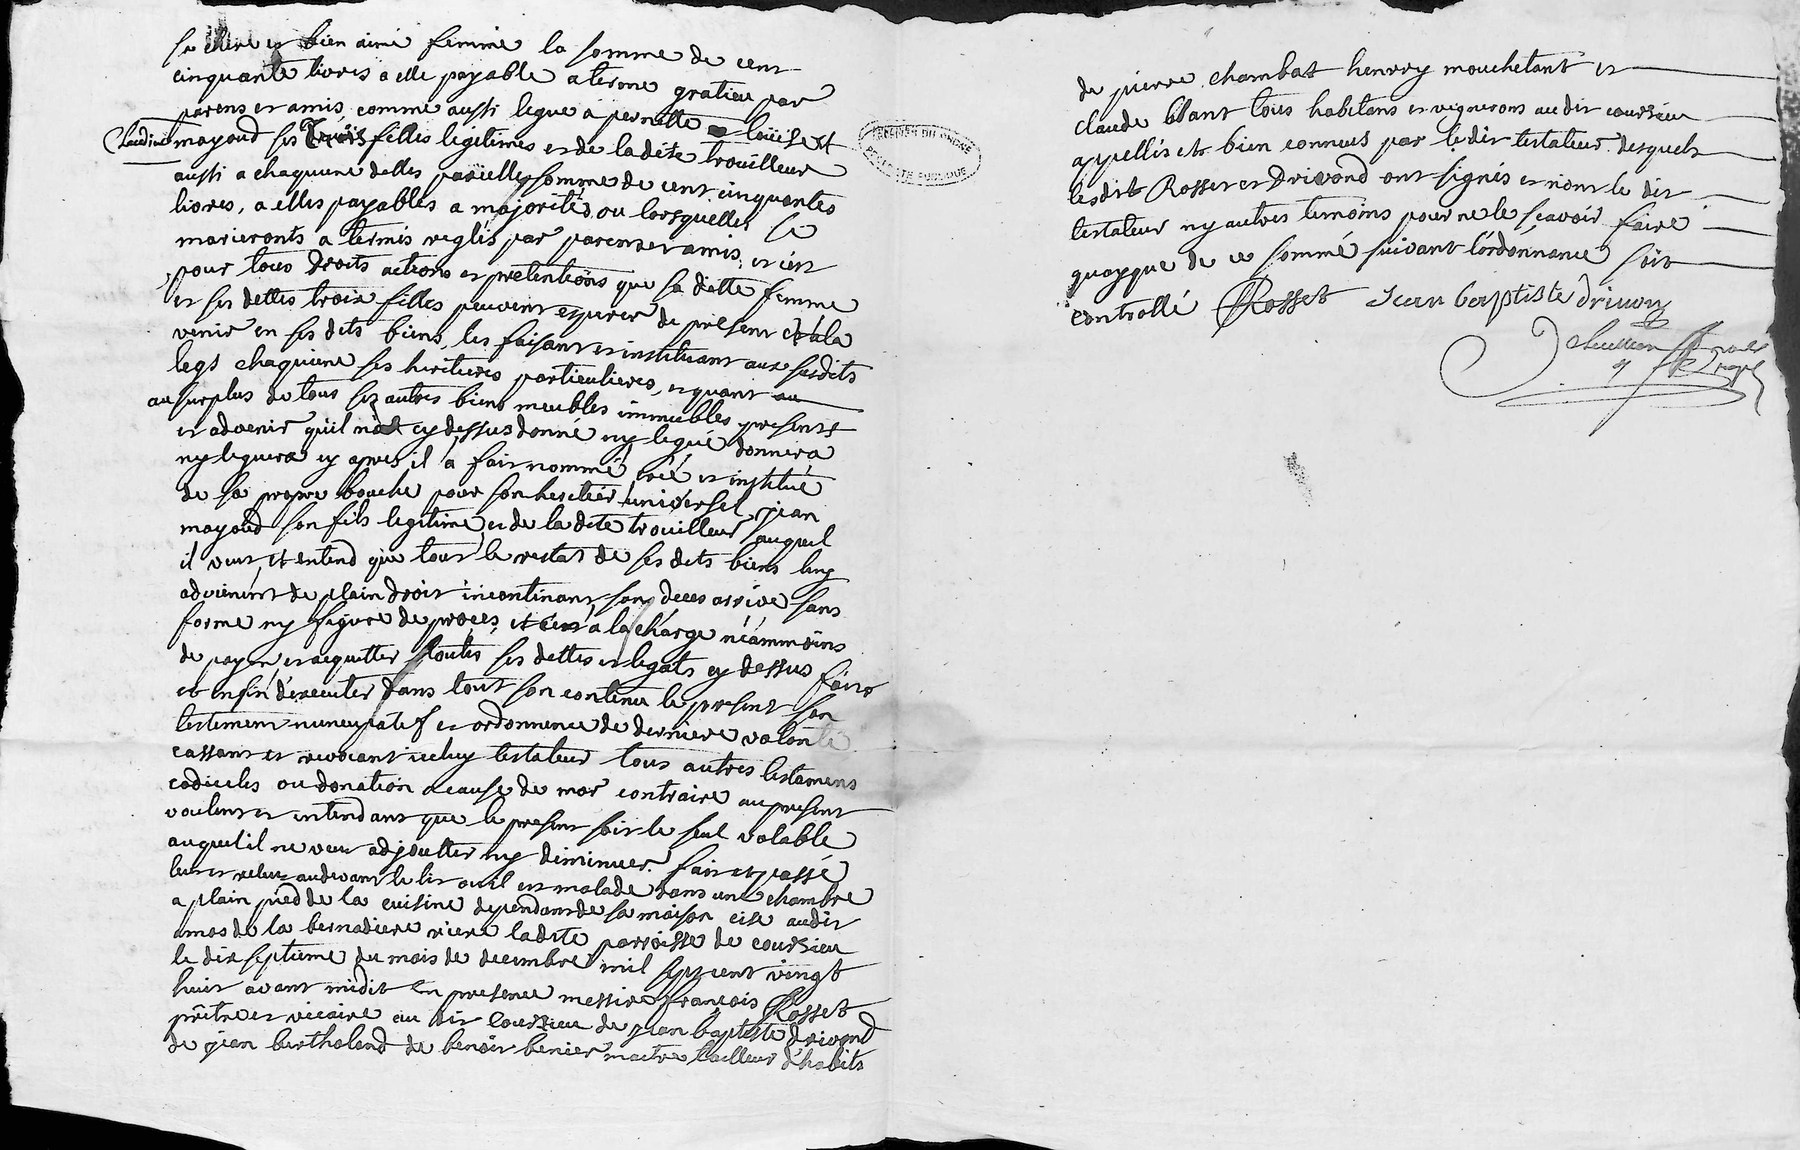 sa chere et bien aimé femme la somme de cent
cinquante livres a elle payable a terme gratieu par
parens et amis, comme aussi legue a pernette louise et
Claudine mayoud ses trois filles legitimes et de la dite trouilleur
aussi a chaquune delles pareilles somme de cent cinquantes
livres, a elles payables a majorités ou lorsquelles se
marieronts a termes reglés par parens et amis, et c'est
pour tous droits actions et pretentions que sa ditte femme
et ses dettes trois filles peuvent esperer de present et a la
venir en ses dits biens, les faisant et instituant aux susdits
legs chaquune ses heritieres particulieres, et quant au
au surplus de tous ses autres biens meubles immeubles presents
et advenir qu'il n'a cy dessus donné ny legué donnera
ny leguera cy apres, il a fait nommé créé et institué
de sa propre bouche pour son heritier universel jean
mayoud son fils legitime et de la dite trouilleur auquel
il veut et entend que tout le restat de ses dits biens luy
advienent de plain droit incontinant son deces arrivé sans
forme ny figure de proces, et c'est a la charge néammoins
de payer et acquitter toutes ses dettes et legats cy dessus faits
et enfin d'executer dans tout son contenu le present son
testement nuncupatif et ordonnence de derniere volonté
cassant et revocant iceluy testateur tous autres testamens
codiciles ou donation a cause de mor contraire au present
voulent et entendant que le present soit le seul valable
auquel il ne veut adjoutter ny diminuer. fait et passé
leu et releu audevant le lit ou il est malade dans une chambre
a plain pied de la cuisine dependant de sa maison cise audit
mas de la bernadiere riere ladite parroisse de courzieu
le dix septieme du mois de decembre mil sept cent vingt
huit avant midit en presence messire françois Rosset
prêtre et vicaire au dit Courzieu de jean baptiste drivond
de jean bertholend de benoit benier maitre tailleur d'habits
de pierre chambat henry mouchetant et
claude blant tous habitans et vignerons au dit courzieu
appellés et bien connus par le dit testateur desquels
lesdit Rosset et Drivond ont signés et non le dit
testateur ny autres temoins pour ne le sçavoir faire
quoyque de ce sommé suivant l'ordonnance soit
controllé Rosset Jean baptiste drivon